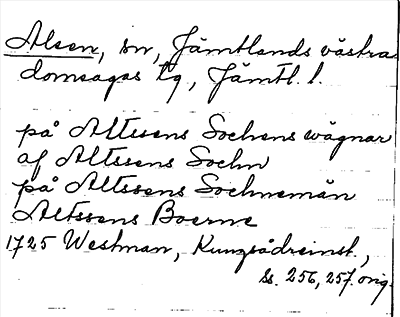 Alsen, sn, Jämtlands västra
domsagas tg, Jämtl. l.
på Altssens Sochens wägnar
af Altssens Sochn
på Altssens Sochnemän
Altssens Boerne
1725 Westman, Kungsådreinst.,
ss. 256, 257. orig.